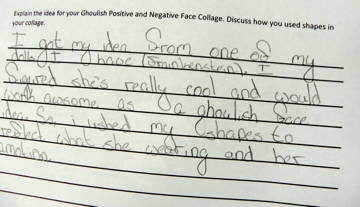 Explain the idea for your Ghoulish Positive and Negative Face Collage. Discuss how you used shapes in
your collage.
I got my idea from one of my
dolls I have (Frankinbenstain). I
figured she's really cool and would
work awsome as a ghoulish face
idea. So i ushed my (shapes to
reflect what she wearing and her